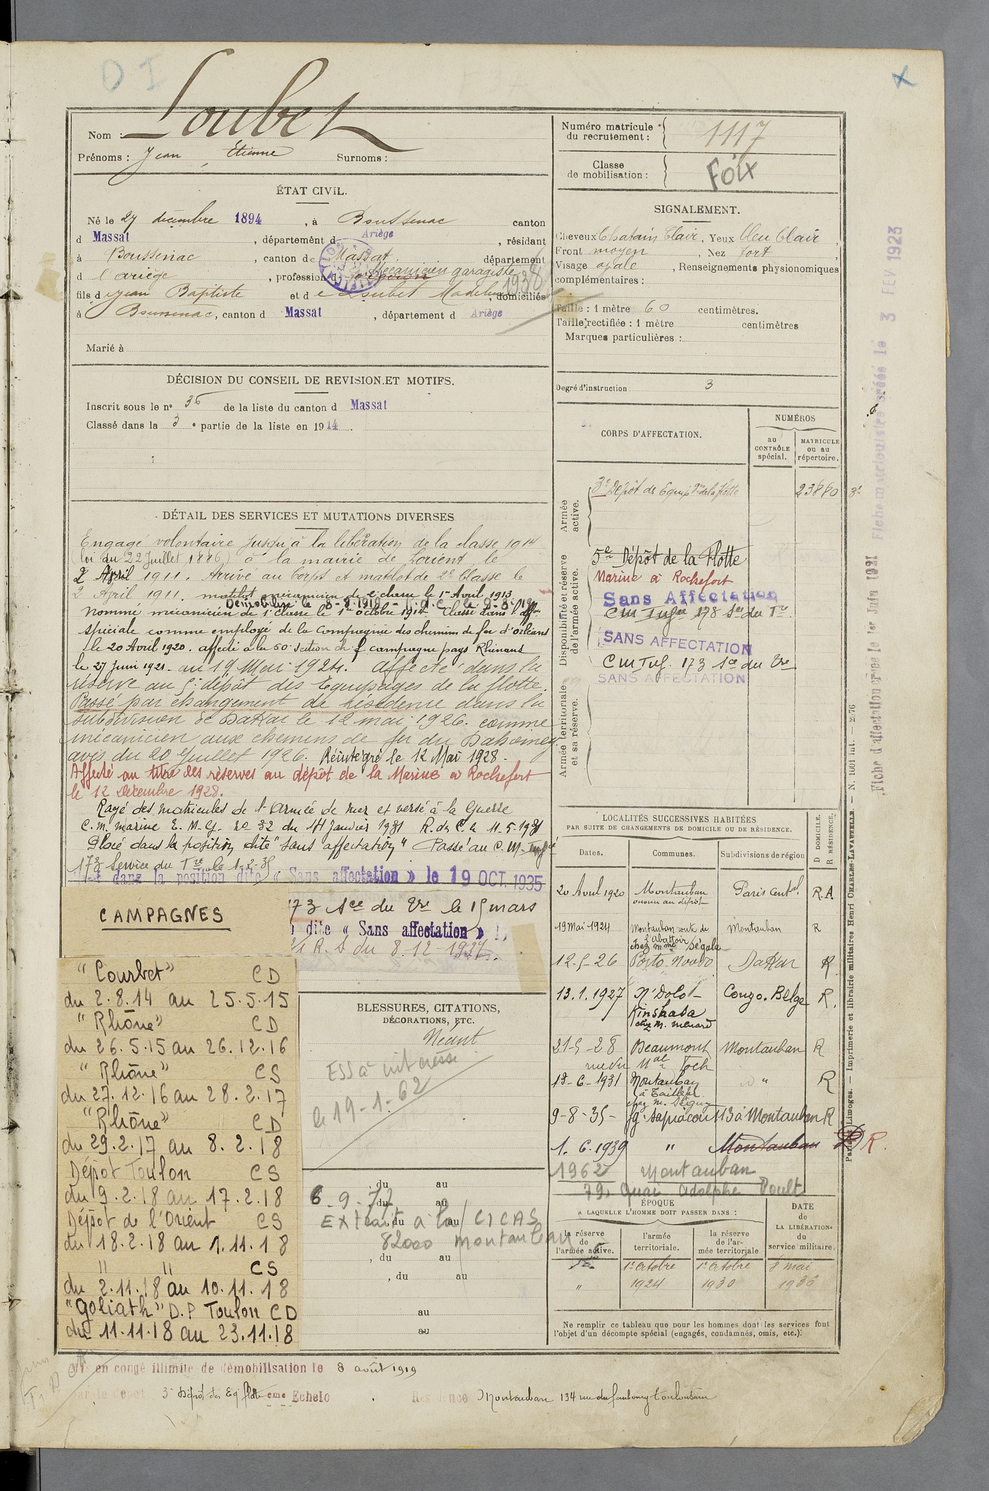 Loubet
Nom :
Prénoms : Jean, Etienne Surnoms :
Numéro matricule du recrutement : 1117
Classe de mobilisation : Foix
ÉTAT CIVIL.
Né le 27 décembre 1894, à Boussenac canton
d Massat, département d Ariège, résidant
à Boussenac, canton de Massat, département
d l'ariège, profession Mécanicien garagiste
fils d e Jean Baptiste et d e Loubet Madeleine, domiciliés
à Boussenac, canton d Massat, département d Ariège
1938
Marié à
SIGNALEMENT.
Cheveux Chatain Clair, Yeux bleu Clair,
Front moyen, Nez fort
Visage ovale, Renseignements physionomiques
complémentaires :
Taille : 1 mètre 60 centimètres.
Taille rectifiée : 1 mètre centimètres
Marques particulières :
Degré d'instruction 3
DÉCISION DU CONSEIL DE REVISION ET MOTIFS.
Inscrit sous le n° 36 de la liste du canton d Massat
Classé dans la 3e partie de la liste en 1914
DÉTAIL DES SERVICES ET MUTATIONS DIVERSES
Engagé volontaire jusqu'à la libération de la classe 1914
loi du 22 Juillet 1886) à la mairie de Lorient le
2 Avril 1911. Arrivé au corps et matelot de 2e classe le
2 Avril 1911. matelot mécanicien de 2e classe le 1er Avril 1913
Démobilisé le 8-8-1919
Nommé mécanicien de 1e classe le 1er octobre 1914 Classé dans l'aff.
spéciale comme employé de la Compagnie des chemins de fer d'orléans
le 20 Avril 1920. affecté à la 50e section de f campagne pays Rhénans
le 27 juin 1921. au 19 Mai 1924. affecté dans la
réserve au 5e dépôt des Equipages de la flotte.
Passé par changement de résidence dans la
subdivision de Dakar le 12 mai 1926. comme
mécanicien aux chemins de fer du Dahomey
avis du 20 Juillet 1926. Réintégré le 12 Mai 1928.
Affecté au titre des réserves au dépôt de la Marine à Rochefort
le 12 Décembre 1928.
Rayé des matricules de l'Armée de mer et versé à la Guerre
C.M. marine E.M.G. no 32 du 14 Janvier 1931 R. du C. le 11.5.1931
Placé dans la position dite "sans affectation" Passé au C.M.
173 Service du Tre le 1.2.35
dans la position dite « Sans affectation » le 19 OCT. 1935
173 Son du Tre le 15 mars
dite « Sans affectation »
R.D du 8.12.1937.
CORPS D'AFFECTATION.
NUMÉROS
au CONTRÔLE spécial.
MATRICULE ou au répertoire.
Armée active.
3e Dépôt de Equip de la flotte 23880 3e
Disponibilité et réserve de l'armée active.
5e Dépôt de la Flotte
Marine à Rochefort
Sans Affectation
SANS AFFECTATION
SANS AFFECTATION
Armée territoriale et sa réserve.
Fiche matriculaire créée le 3 FEV 1923
Fiche d'affectation créée le 1er Juin 1921
LOCALITÉS SUCCESSIVES HABITÉES
PAR SUITE DE CHANGEMENTS DE DOMICILE OU DE RÉSIDENCE.
Dates. Communes. Subdivisions de région D DOMICILE. R RÉSIDENCE.
20 Avril 1920 Montauban ouvrier au dépôt Paris Central R.A
19 Mai 1924 Montauban route de l'Abattoir chez Mme Ségala Montauban R
12-5-26 Porto Novo Dakar R.
13.1.1927 N'Dolo Kinshasa chez M. Ménard Congo-Belge R.
21-5-28 Beaumont rue du Mal Foch Montauban R
18-6-1931 Montauban R
9-8-35- fg. Sapiacou 113 à Montauban R
1.6.1939 " Montauban D R.
1962 Montauban
79, Quai Adolphe Poult
CAMPAGNES
"Courbet" CD
du 2.8.14 au 25.5.15
"Rhône" CD
du 26.5.15 au 26.12.16
"Rhône" CS
du 27.12.16 au 28.2.17
"Rhône" CD
du 29.2.17 au 8.2.18
Dépôt Toulon CS
du 9.2.18 au 17.2.18
Dépôt de l'Orient CS
du 18.2.18 au 1.11.18
" " CS
du 2.11.18 au 10.11.18
"Goliath" D.P Toulon CD
du 11.11.18 au 23.11.18
BLESSURES, CITATIONS,
DÉCORATIONS, ETC.
Néant
ESS à intéressé
le 19-1-62
, du au
6-9-77
Extrait à la CICAS
82000 Montauban
, du au
, du au
au
au
ÉPOQUE
A LAQUELLE L'HOMME DOIT PASSER DANS :
DATE DE LA LIBÉRATION du service militaire.
la réserve de l'armée active. l'armée territoriale. la réserve de l'armée territoriale
1er octobre 1er octobre 8 mai
" 1924 1930 1936
Ne remplir ce tableau que pour les hommes dont les services font
l'objet d'un décompte spécial (engagés, condamnés, omis, etc.):
Paris et Limoges. — Imprimerie et librairie militaires Henri CHARLES-LAVAUZELLE. — N. 1001 int. — 2/76
en congé illimité de démobilisation le 8 août 1919
par le dépôt 3e Dépôt des Eq flotte eme Echelon. Résidence Montauban 134 rue du faubourg toulousain